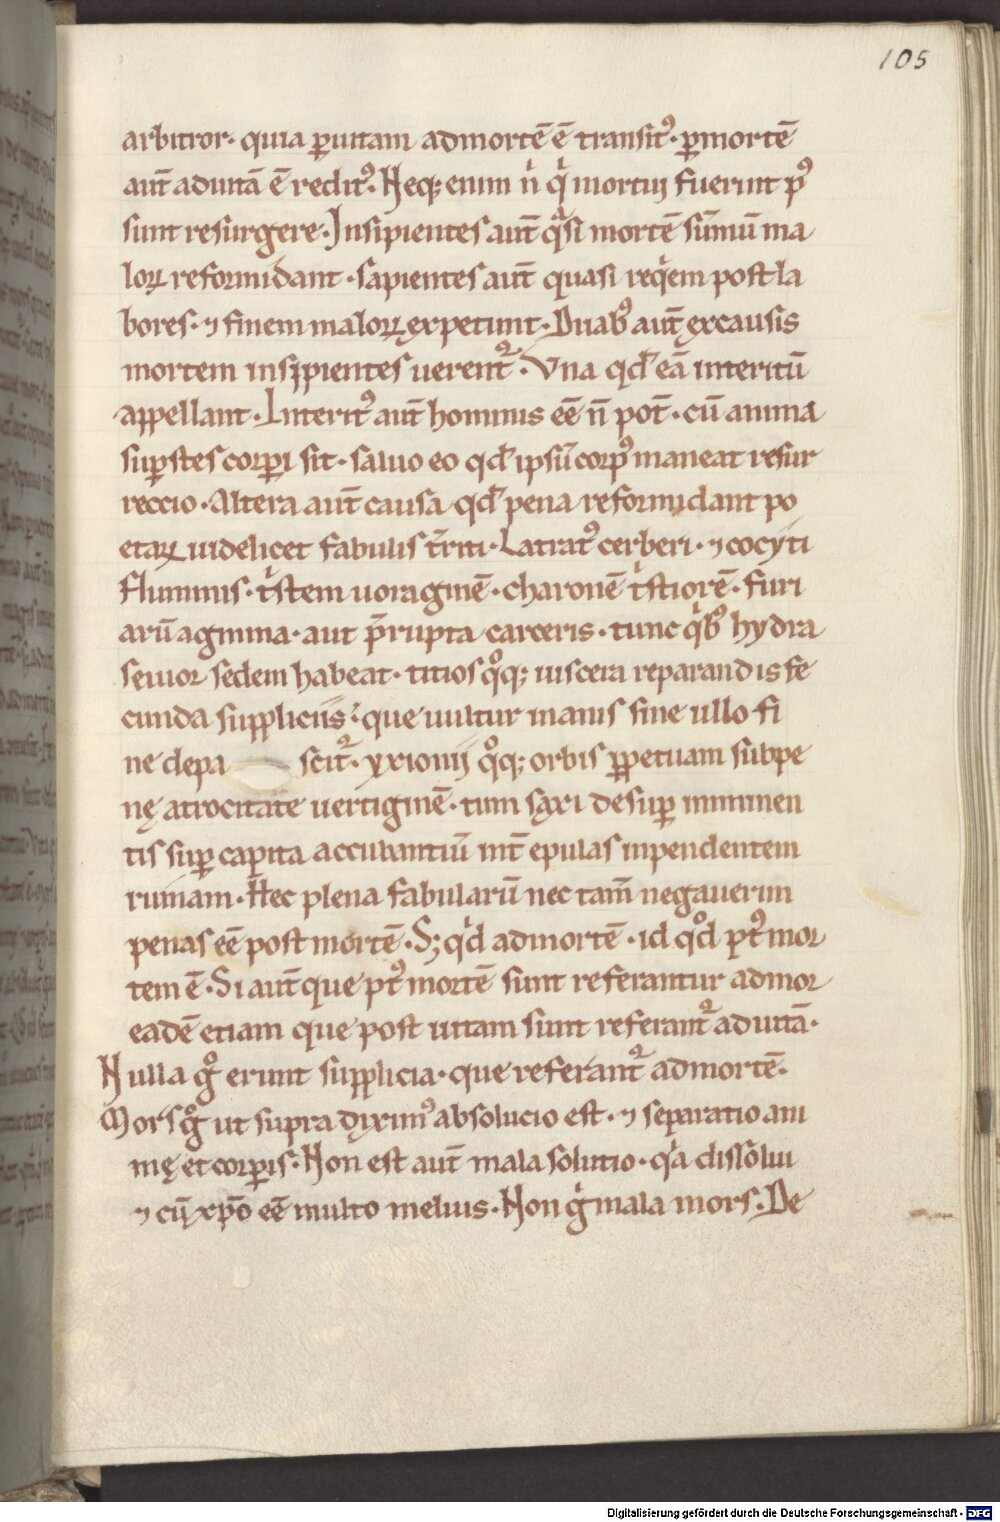 105
arbitror· quia ꝑ uitam ad mortē ē transitꝰ· ꝑ mortē
aut̄ ad uitā ē reditꝰ. Neq; enim n̄ qͥ mortui fuerint pꝰ
sunt resurgere. Insipientes aut̄ qͣsi mortē sūmū ma
loꝝ reformidant· sapientes aut̄ quasi reqͥem post la
bores· ⁊ finem maloꝝ expetunt. Duabꝰ aut̄ ex causis
mortem insipientes uerent᷑. Vna qd̄ eā interitū
appellant. Interitꝰ aut̄ hominis eē n̄ pot̄· cū anima
suꝑstes corꝑi sit· saluo eo qd̄ ipsū corpꝰ maneat resur
reccio. Altera aut̄ causa qd̄ pena reformidant po
etaꝝ uidelicet fabulis tr̄riti. Latratꝰ cerberi· ⁊ cocyti
fluminis· tͥstem uoraginē· charonē tͥstiorē· furi
arū agmina· aut p̄rupta carceris· tunc qͥbꝰ hydra
seuior sedem habeat· titios qͦq; uiscera reparandis fe
cunda suppliciis· que uultur inanis sine ullo fi
ne depa scit᷑· yxionii qͦq; orbis ꝑpetuam sub pe
nę atrocitate uertiginē· tum saxi desuꝑ imminen
tis suꝑ capita accubantiū int̄ epulas inpendentem
ruinam. Hec plena fabularū nec tam̄ negauerim
penas eē post mortē. S; qͥd ad mortē· id qͦd pꝰt mor
tem ē. Si aut̄ que pꝰt mortē sunt referantur ad mor
eadē etiam que post uitam sunt referant᷑ ad uitā.
Nulla gͦ erunt supplicia· que referant᷑ ad mortē.
Mors gͦ ut supra diximꝰ absolucio est· ⁊ separatio ani
mę et corꝑis. Non est aut̄ mala solutio· qͥa dissolui
⁊ cū xp̄o eē multo melius. Non gͥ mala mors. De
Digitalisierung gefördert durch die Deutsche Forschungsgemeinschaft - DFG